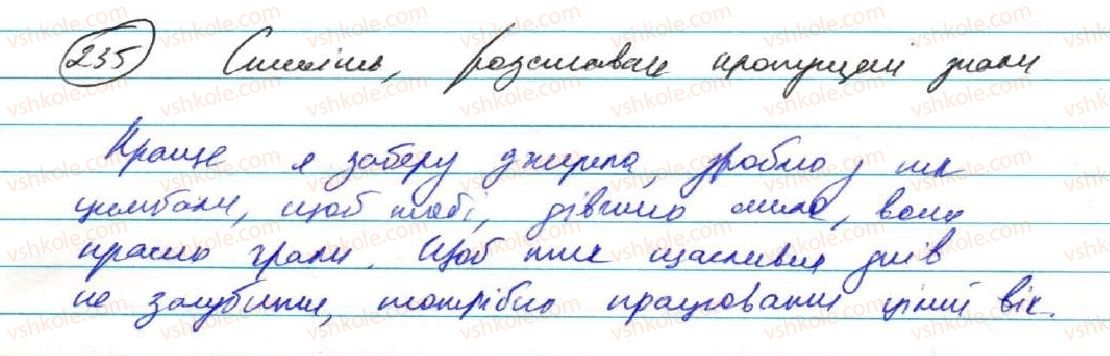 235 Спишіть, розставте пропущені знаки
Краще я заберу джерела, зроблю з них
цимбали, щоб тобі, дівчино мила, вони
красно грали. Щоб тих щасливих днів
не загубити, потрібно працювати цілий вік.